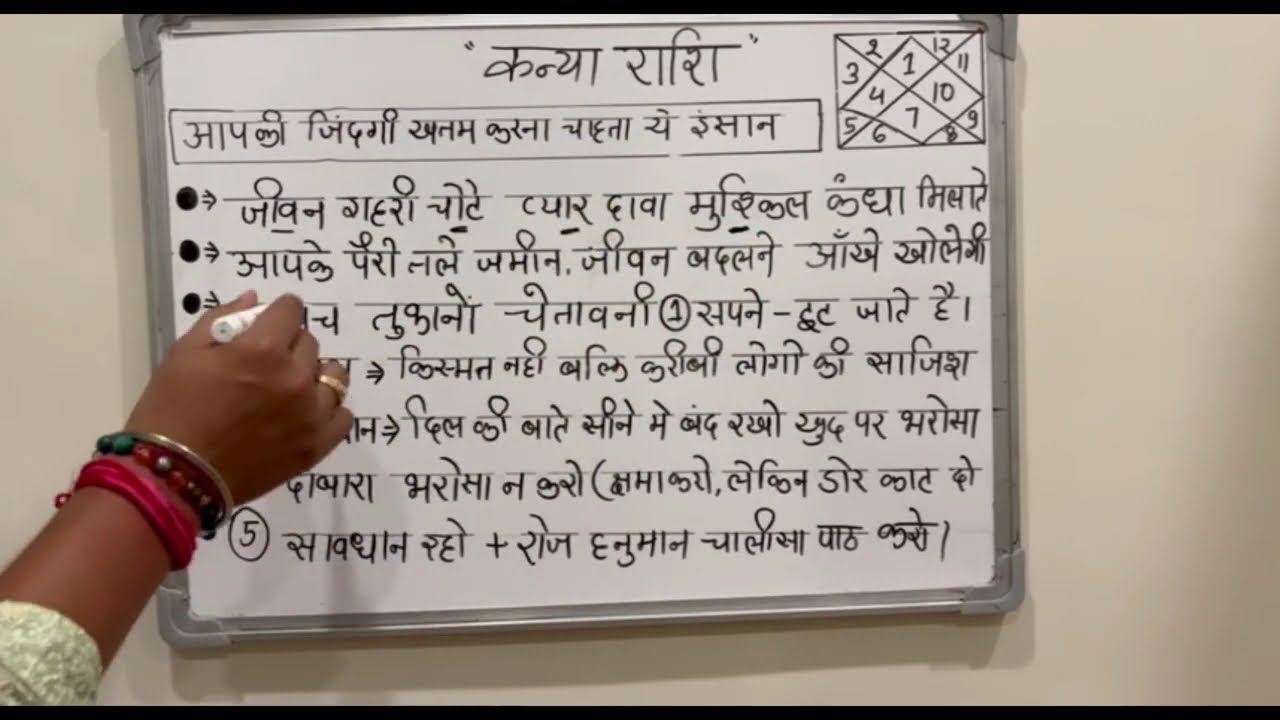 "कन्या राशि"
2 12 1 11 3 4 10 5 7 9 6 8
आपकी जिंदगी खतम करना चाहता ये इंसान
⇒ जीवन गहरी चोटे प्यार दावा मुश्किल कंधा मिलाते
⇒ आपके पैरो तले जमीन, जीवन बदलने आँखे खोलेगी
⇒ तुकानों चेतावनी ① सपने - टूट जाते है।
⇒ किस्मत नही बल्कि करीबी लोगो की साजिश
⇒ दिल की बाते सीने मे बंद रखो खुद पर भरोसा
भरोसा न करो (क्षमा करो, लेकिन डोर काट दो
⑤ सावधान रहो + रोज हनुमान चालीसा पाठ करो।